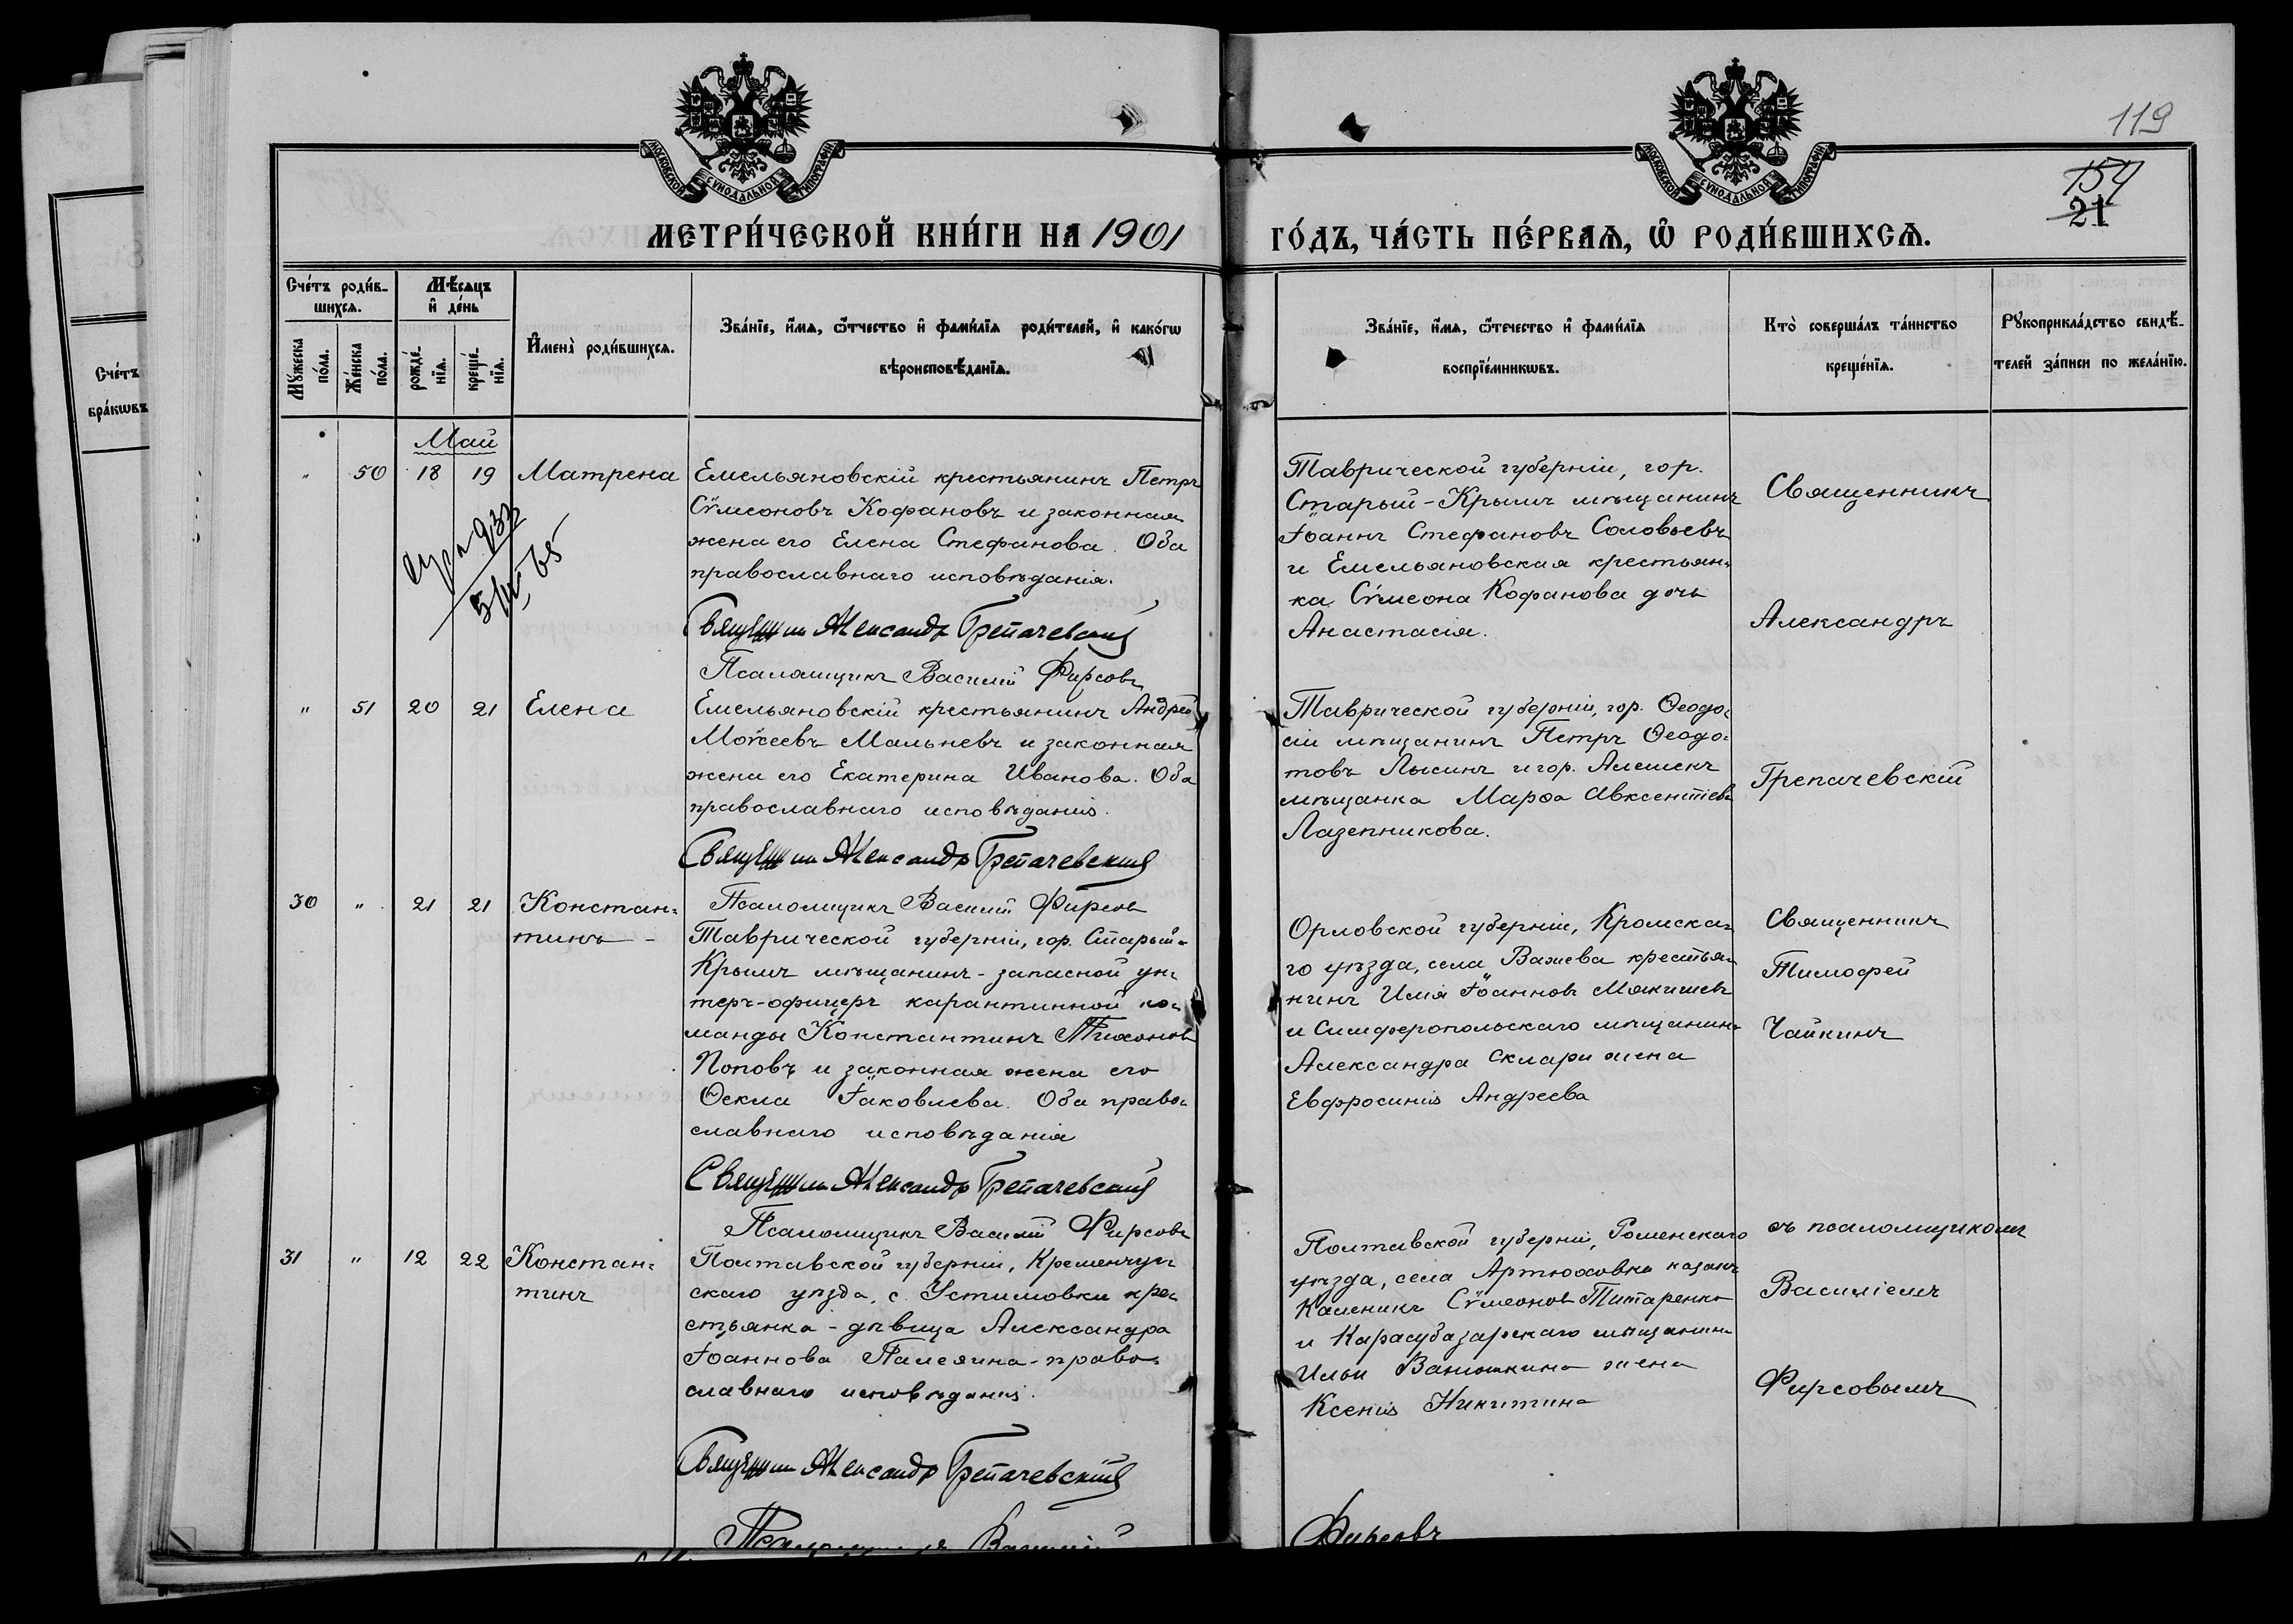 119
154
21
МОСКОВСКОЙ СѴНОДАЛЬНОЙ ТИПОГРАФІИ
МОСКОВСКОЙ СѴНОДАЛЬНОЙ ТИПОГРАФІИ
МЕТРИ́ЧЕСКОЙ КНИ́ГИ НА 1901
ГО́ДЪ, ЧА́СТЬ ПЕ́РВАѦ, Ѡ҆ РОДИ́ВШИХСѦ.
Сче́тъ
бра́кѡвъ
Сче́тъ роди́в-
шихсѧ.
Мꙋ́жеска
по́ла.
Же́нска
по́ла.
Мѣ́сѧцъ
и҆ де́нь
рожде́-
нїѧ.
креще́-
нїѧ.
И҆мена̀ роди́вшихсѧ.
Зва́нїе, и҆́мѧ, ѻ҆́тчество и҆ фами́лїѧ роди́телей, и҆ како́гѡ
вѣроисповѣ́данїѧ.
Зва́нїе, и҆́мѧ, ѻ҆́течество и҆ фами́лїѧ
воспрїе́мникѡвъ.
Кто̀ соверша́лъ та́инство
креще́нїѧ.
Рꙋкоприкла́дство свидѣ́-
телей за́писи по жела́нїю.
Май
" 50 18 19 Матрена
Емельяновскій крестьянинъ Петръ
Сѵмеоновъ Кофановъ и законная
жена его Елена Стефанова. Оба
православнаго исповѣданія.
Священникъ Александръ Грепачевскій
Псаломщикъ Василій Фирсовъ
Таврической губерніи, гор.
Старый-Крымъ мѣщанинъ
Іоаннъ Стефановъ Соловьевъ
и Емельяновская крестьян-
ка Сѵмеона Кофанова дочь
Анастасія.
Священникъ
Александръ
Грепачевскій
" 51 20 21 Елена
Емельяновскій крестьянинъ Андрей
Моѵсеевъ Мальневъ и законная
жена его Екатерина Иванова. Оба
православнаго исповѣданія.
Священникъ Александръ Грепачевскій
Псаломщикъ Василій Фирсовъ
Таврической губерніи, гор. Ѳеодо-
сіи мѣщанинъ Петръ Ѳеодо-
товъ Лысинъ и гор. Алешекъ
мѣщанка Марѳа Авксентіева
Лазепникова.
30 " 21 21 Констан-
тинъ
Таврической губерніи, гор. Старый-
Крымъ мѣщанинъ - запасной ун-
теръ-офицеръ карантинной ко-
манды Константинъ Тихоновъ
Поповъ и законная жена его
Ѳекла Іаковлева. Оба право-
славнаго исповѣданія
Священникъ Александръ Грепачевскій
Псаломщикъ Василій Фирсовъ
Орловской губерніи, Кромска-
го уѣзда, села Важева крестья-
нинъ Илія Іоанновъ Мякишевъ
и Симферопольскаго мѣщанина
Александра Склари жена
Евфросинія Андреева
Священникъ
Тимофей
Чайкинъ
31 " 12 22 Констан-
тинъ
Полтавской губерніи, Кременчуг-
скаго уѣзда, с. Устимовки кре-
стьянка - дѣвица Александра
Іоаннова - право-
славнаго исповѣданія.
Священникъ Александръ Грепачевскій
Псаломщикъ Василій
Полтавской губерніи, Роменскаго
уѣзда, села Артюховки казакъ
Каленикъ Сѵмеоновъ Титаренко
и Карасубазарскаго мѣщанина
Ильи Ванюшкина жена
Ксенія Никитина
Фирсовъ
съ псаломщикомъ
Василіемъ
Фирсовымъ